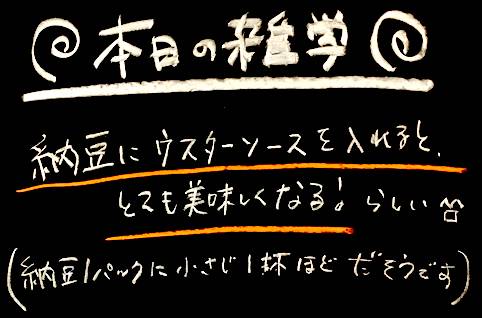 本日の雑学
納豆にウスターソースを入れると、
とても美味しくなる！らしい
(納豆1パックに小さじ1杯ほどだそうです)